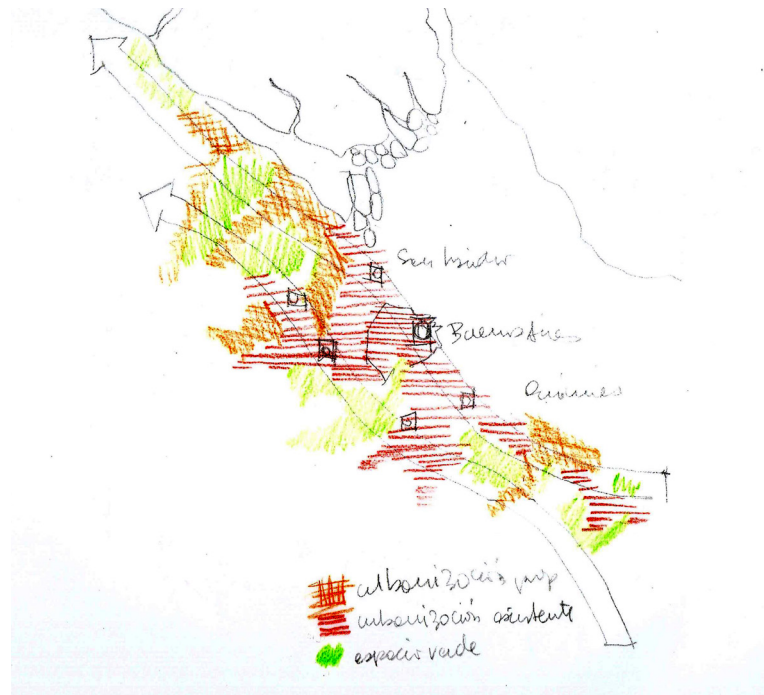 San Isidro
Buenos Aires
Quilmes
urbanización prop
urbanización existente
espacio verde